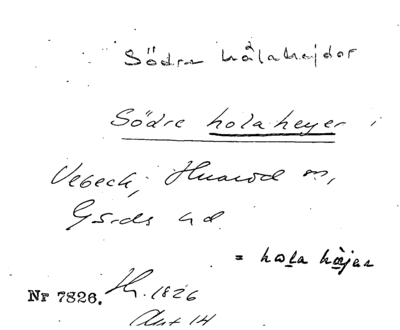 Södra hålahejdor
Södre holaheyer i
Vebeck, Huarod sn,
Gärds hd.
= hola häjar
Nr 7826. H. 1826
Akt 14